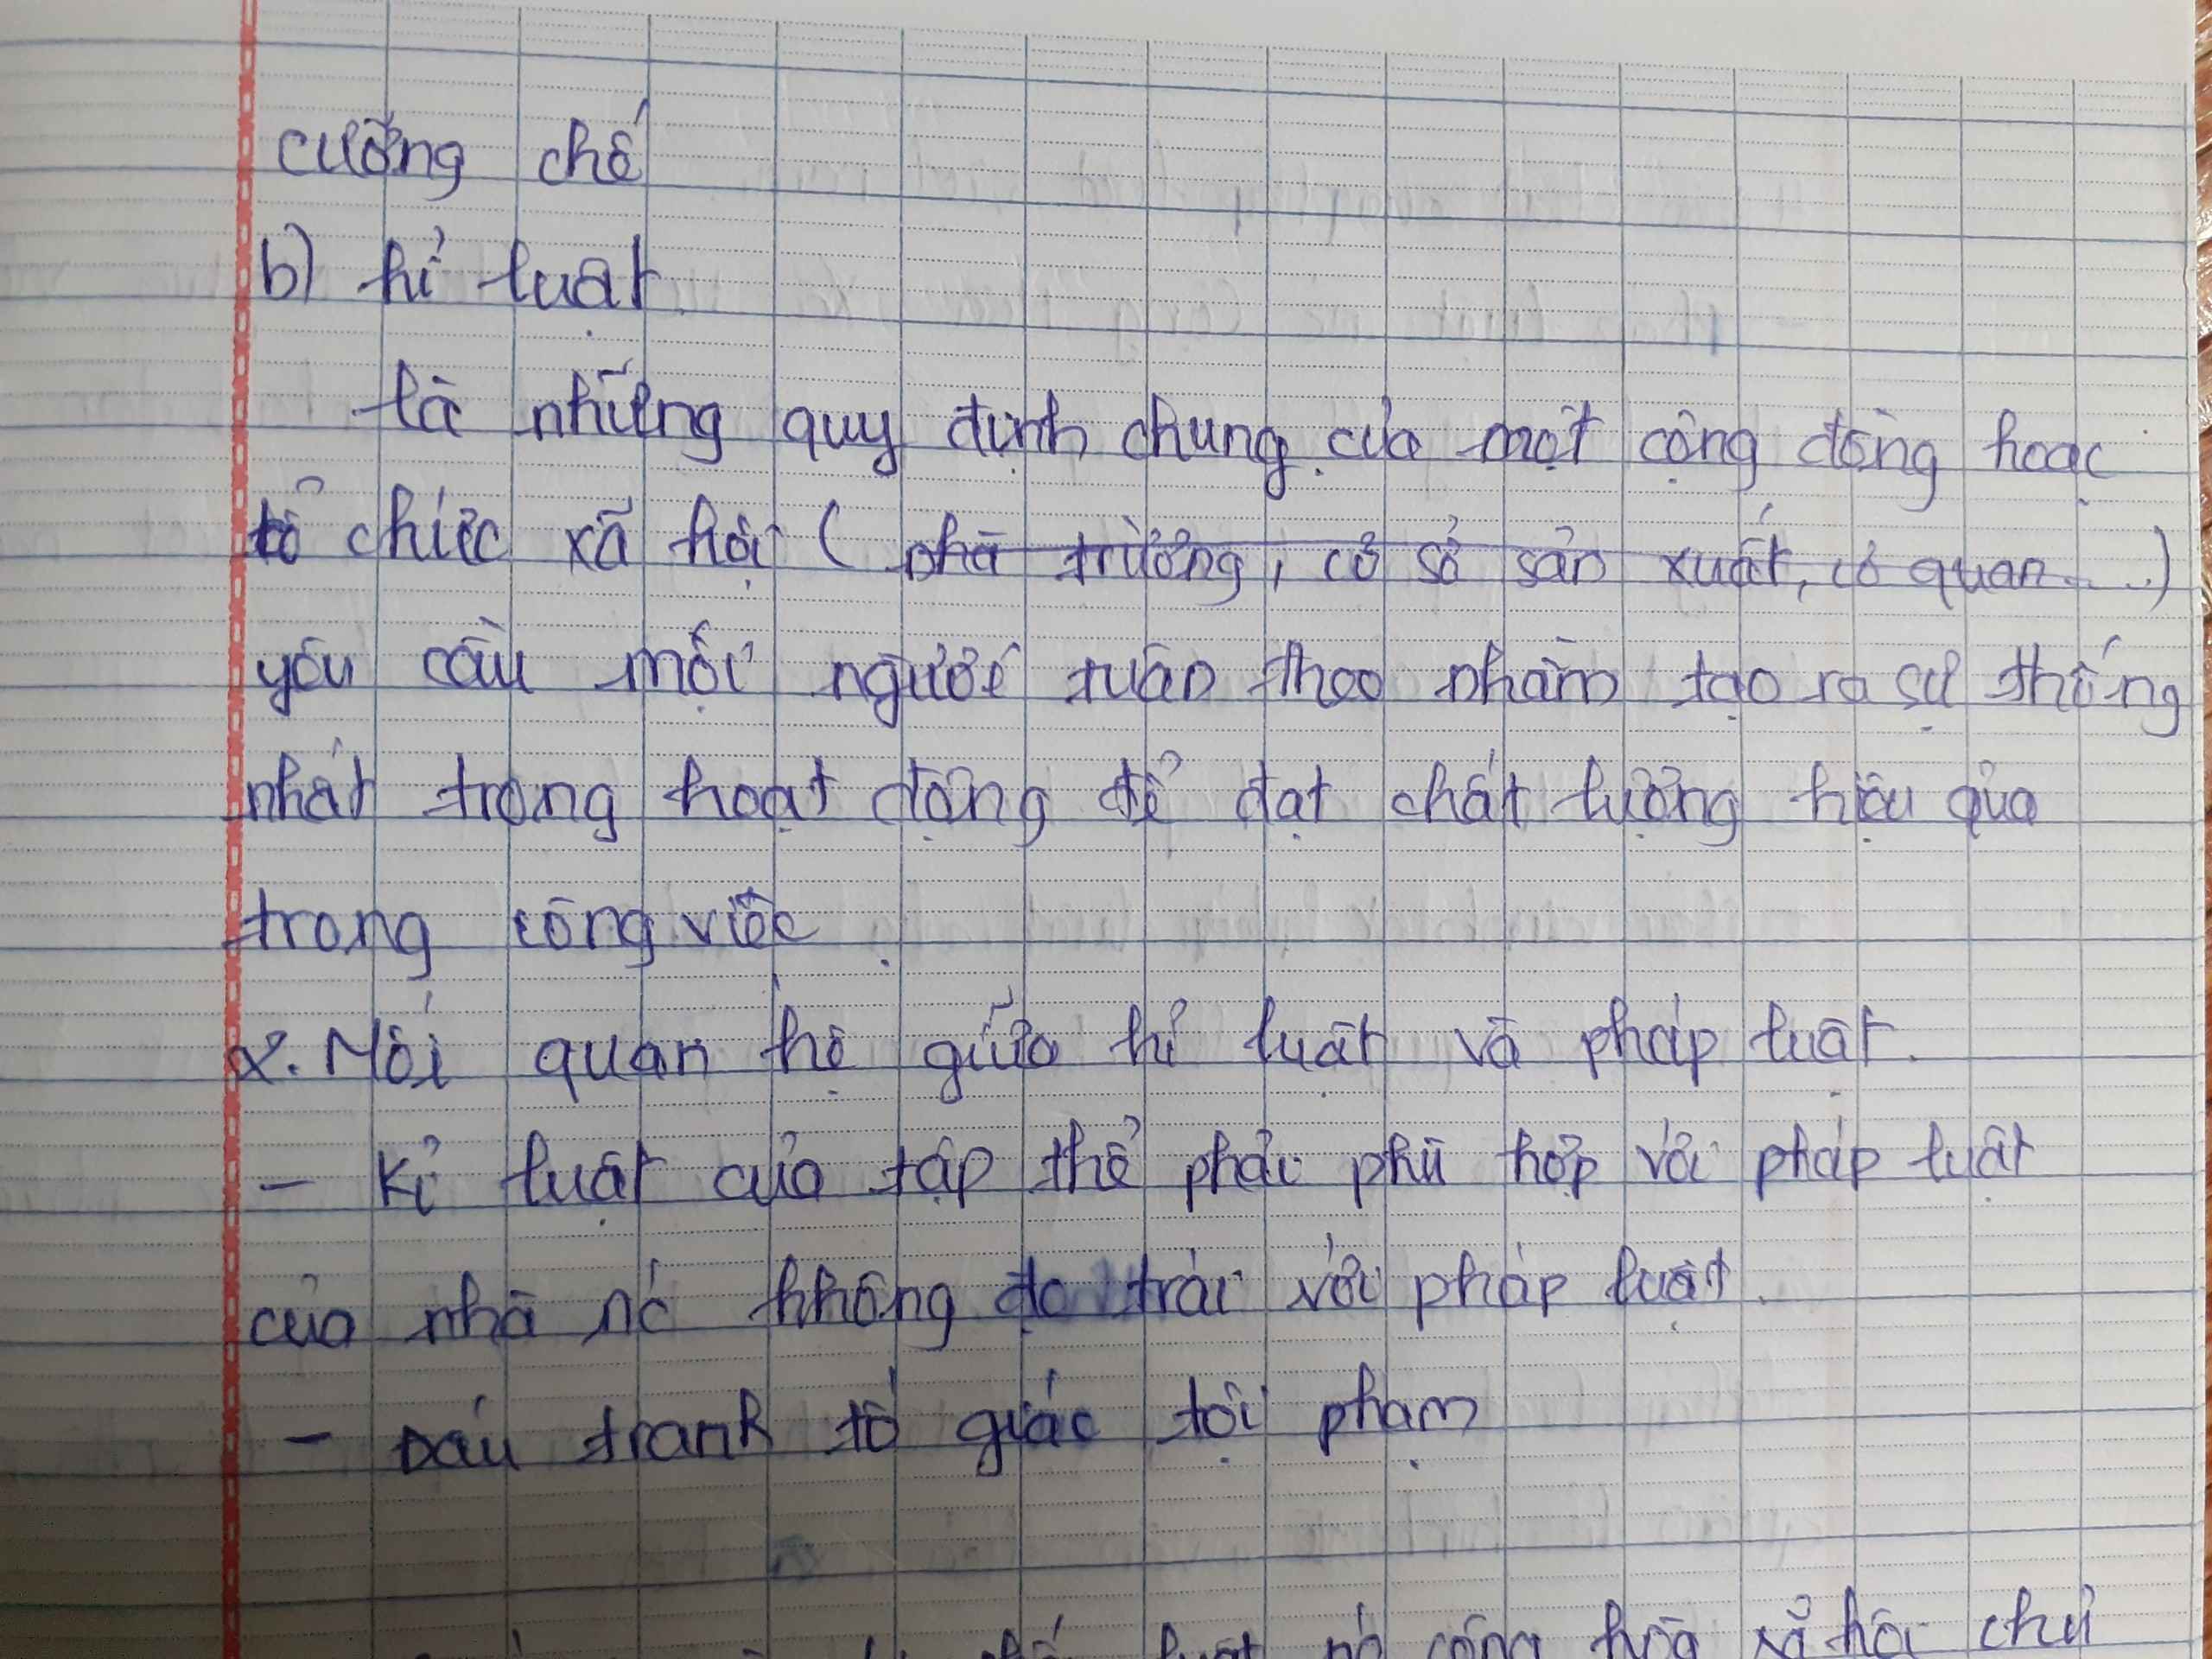 cưỡng chế
b) kỉ luật
là những quy định chung của một cộng đồng hoặc
tổ chức xã hội ( nhà trường, cơ sở sản xuất, cơ quan....)
yêu cầu mọi người tuân theo nhằm tạo ra sự thống
nhất trong hoạt động để đạt chất lượng hiệu quả
trong công việc
2. Mối quan hệ giữa kỉ luật và pháp luật.
- Kỉ luật của tập thể phải phù hợp với pháp luật
của nhà nc không đc trái với pháp luật.
- Đấu tranh tố giác tội phạm
luật nc cộng hòa xã hội chủ